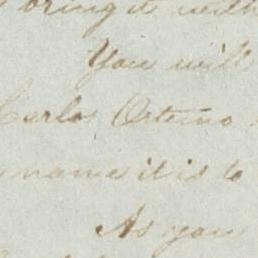 bring it with
You will
Carlos Orteno
name it is to
As you